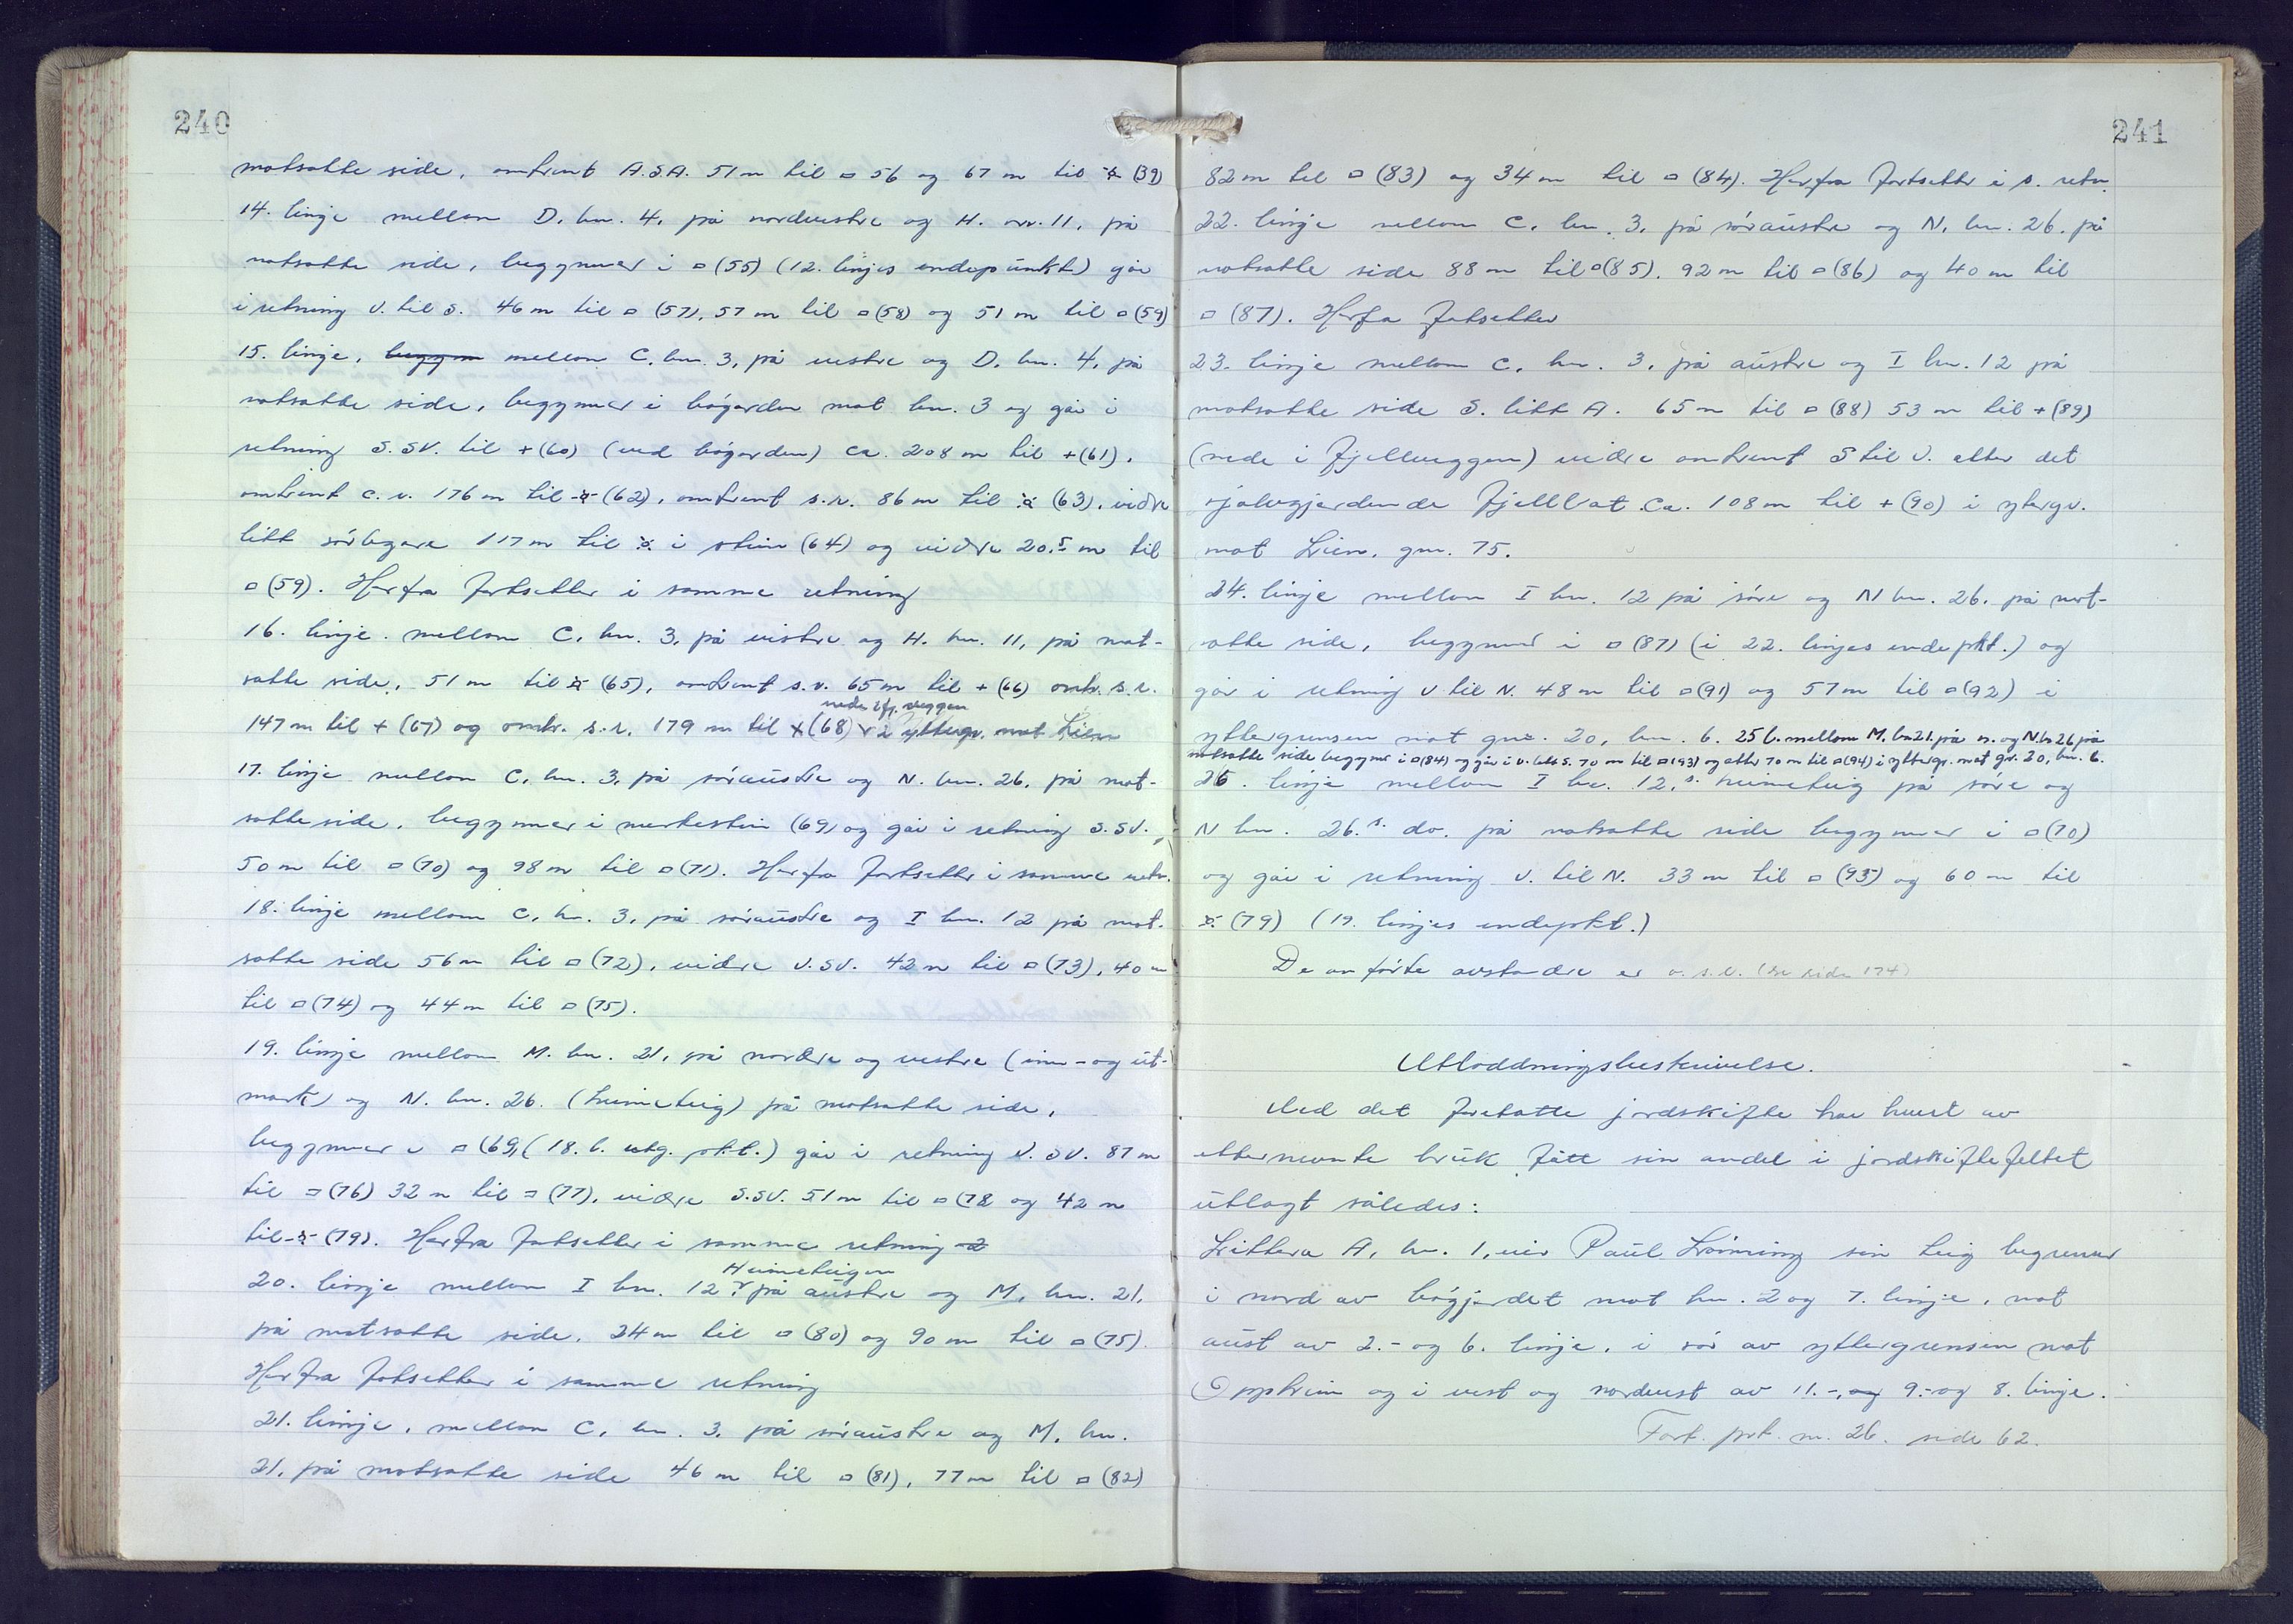 240
motsatte side, omtrent A.S.A. 51 m til □ 56 og 67 m til ¤ (39)
14. linje mellom D, bn. 4, på nordvestre og H. nr. 11, på
motsatte side, begynner i □ (55) (12. linjes endepunkt) går
i retning V. til S. 46 m til □ (57), 57 m til □ (58) og 51 m til □ (59)
15. linje, begynn mellom C, bn. 3, på vestre og D. bn. 4, på
motsatte side, begynner i bøgarden mot bn. 3 og går i
retning S. SV. til + (60) (ved bøgarden) ca. 208 m til + (61),
omtrent c. v. 176 m til ¤ (62), omtrent s. r. 86 m til ¤ (63), vidre
litt sørlegare 117 m til ¤ i stein (64) og vidre 20.5 m til
□ (59). Herfra fortsetter i samme retning
16. linje mellom C, bn. 3, på vestre og H. bn. 11, på mot-
satte side, 51 m til ¤ (65), omtrent s. v. 65 m til + (66) omtr. s. r.
nede i fj. veggen
147 m til + (67) og omtr. s. r. 179 m til x (68) i yttergr. mot Lien
17. linje mellom C, bn. 3, på søraustre og N. bn. 26, på mot-
satte side, begynner i merkestein (69) og går i retning S. SV.,
50 m til □ (70) og 98 m til □ (71). Herfra fortsetter i samme retn.
18. linje mellom C, bn. 3, på søraustre og I bn. 12 på mot-
satte side 56 m til □ (72), vidre V. SV. 42 m til □ (73), 40 m
til □ (74) og 44 m til □ (75).
19. linje mellom M. bn. 21, på nordre og vestre (inn- og ut-
mark) og N. bn. 26. (heimeteig) på motsatte side,
begynner i □ (69, (18. l. utg. pkt.) går i retning V. SV. 87 m
til □ (76) 32 m til □ (77), vidre S. SV. 51 m til □ (78 og 42 m
til ¤ (79). Herfra fortsetter i samme retning 2
Heimeteigen
20. linje mellom I bn. 12, på austre og M, bn. 21,
på motsatte side, 24 m til □ (80) og 90 m til □ (75).
Herfra fortsetter i samme retning
21. linje, mellom C, bn. 3, på søraustre og M, bn.
21, på motsatte side 46 m til □ (81), 77 m til □ (82)
241
82 m til □ (83) og 34 m til □ (84). Herfra fortsetter i s. retn.
22. linje mellom C, bn. 3, på søraustre og N, bn. 26. på
motsatte side 88 m til □ (85), 92 m til □ (86) og 40 m til
□ (87). Herfra fortsetter
23. linje mellom C, bn. 3, på austre og I bn. 12 på
motsatte side S. litt A. 65 m til □ (88) 53 m til + (89)
(nede i fjellveggen) vidre omtrent S til V. etter det
sjølvgjerdende fjellbat ca. 108 m til + (90) i yttergr.
mot Lien, gnr. 75.
24. linje mellom I bn. 12 på søre og N bn. 26, på mot-
satte side, begynner i □ (87) (i 22. linjes endepkt.) og
går i retning V til N. 48 m til □ (91) og 57 m til □ (92) i
yttergrensen mot gnr. 20, bn. 6. 25 l. mellom M. bn 21. på n. og N. bn 26 på
motsatte side begynner i □ (84) og går i V. litt S. 70 m til □ (93) og etter 70 m til □ (94) i yttergr. mot gr. 20, bn. 6.
26. linje mellom I bn. 12,s heimeteig på søre og
N bn. 26.s do. på motsatte side begynner i □ (70)
og går i retning V. til N. 33 m til □ (95) og 60 m til
¤ (79) (19. linjes endepkt.)
De anførte avstandre er o. s. v. (se side 174)
Utloddningsbeskrivelse.
Ved det foretatte jordskifte har hvert av
etternevnte bruk fått sin andel i jordskiftefeltet
utlagt således:
Littera A, bn. 1, eier Paul Løining sin teig begrenses
i nord av bøgjerdet mot bn. 2 og 7. linje, mot
aust av 2.- og 6. linje, i sør av yttergrensen mot
Oppheim og i vest og nordvest av 11.-, og 9.- og 8. linje.
Fort. prt. nr. 26. side 62.